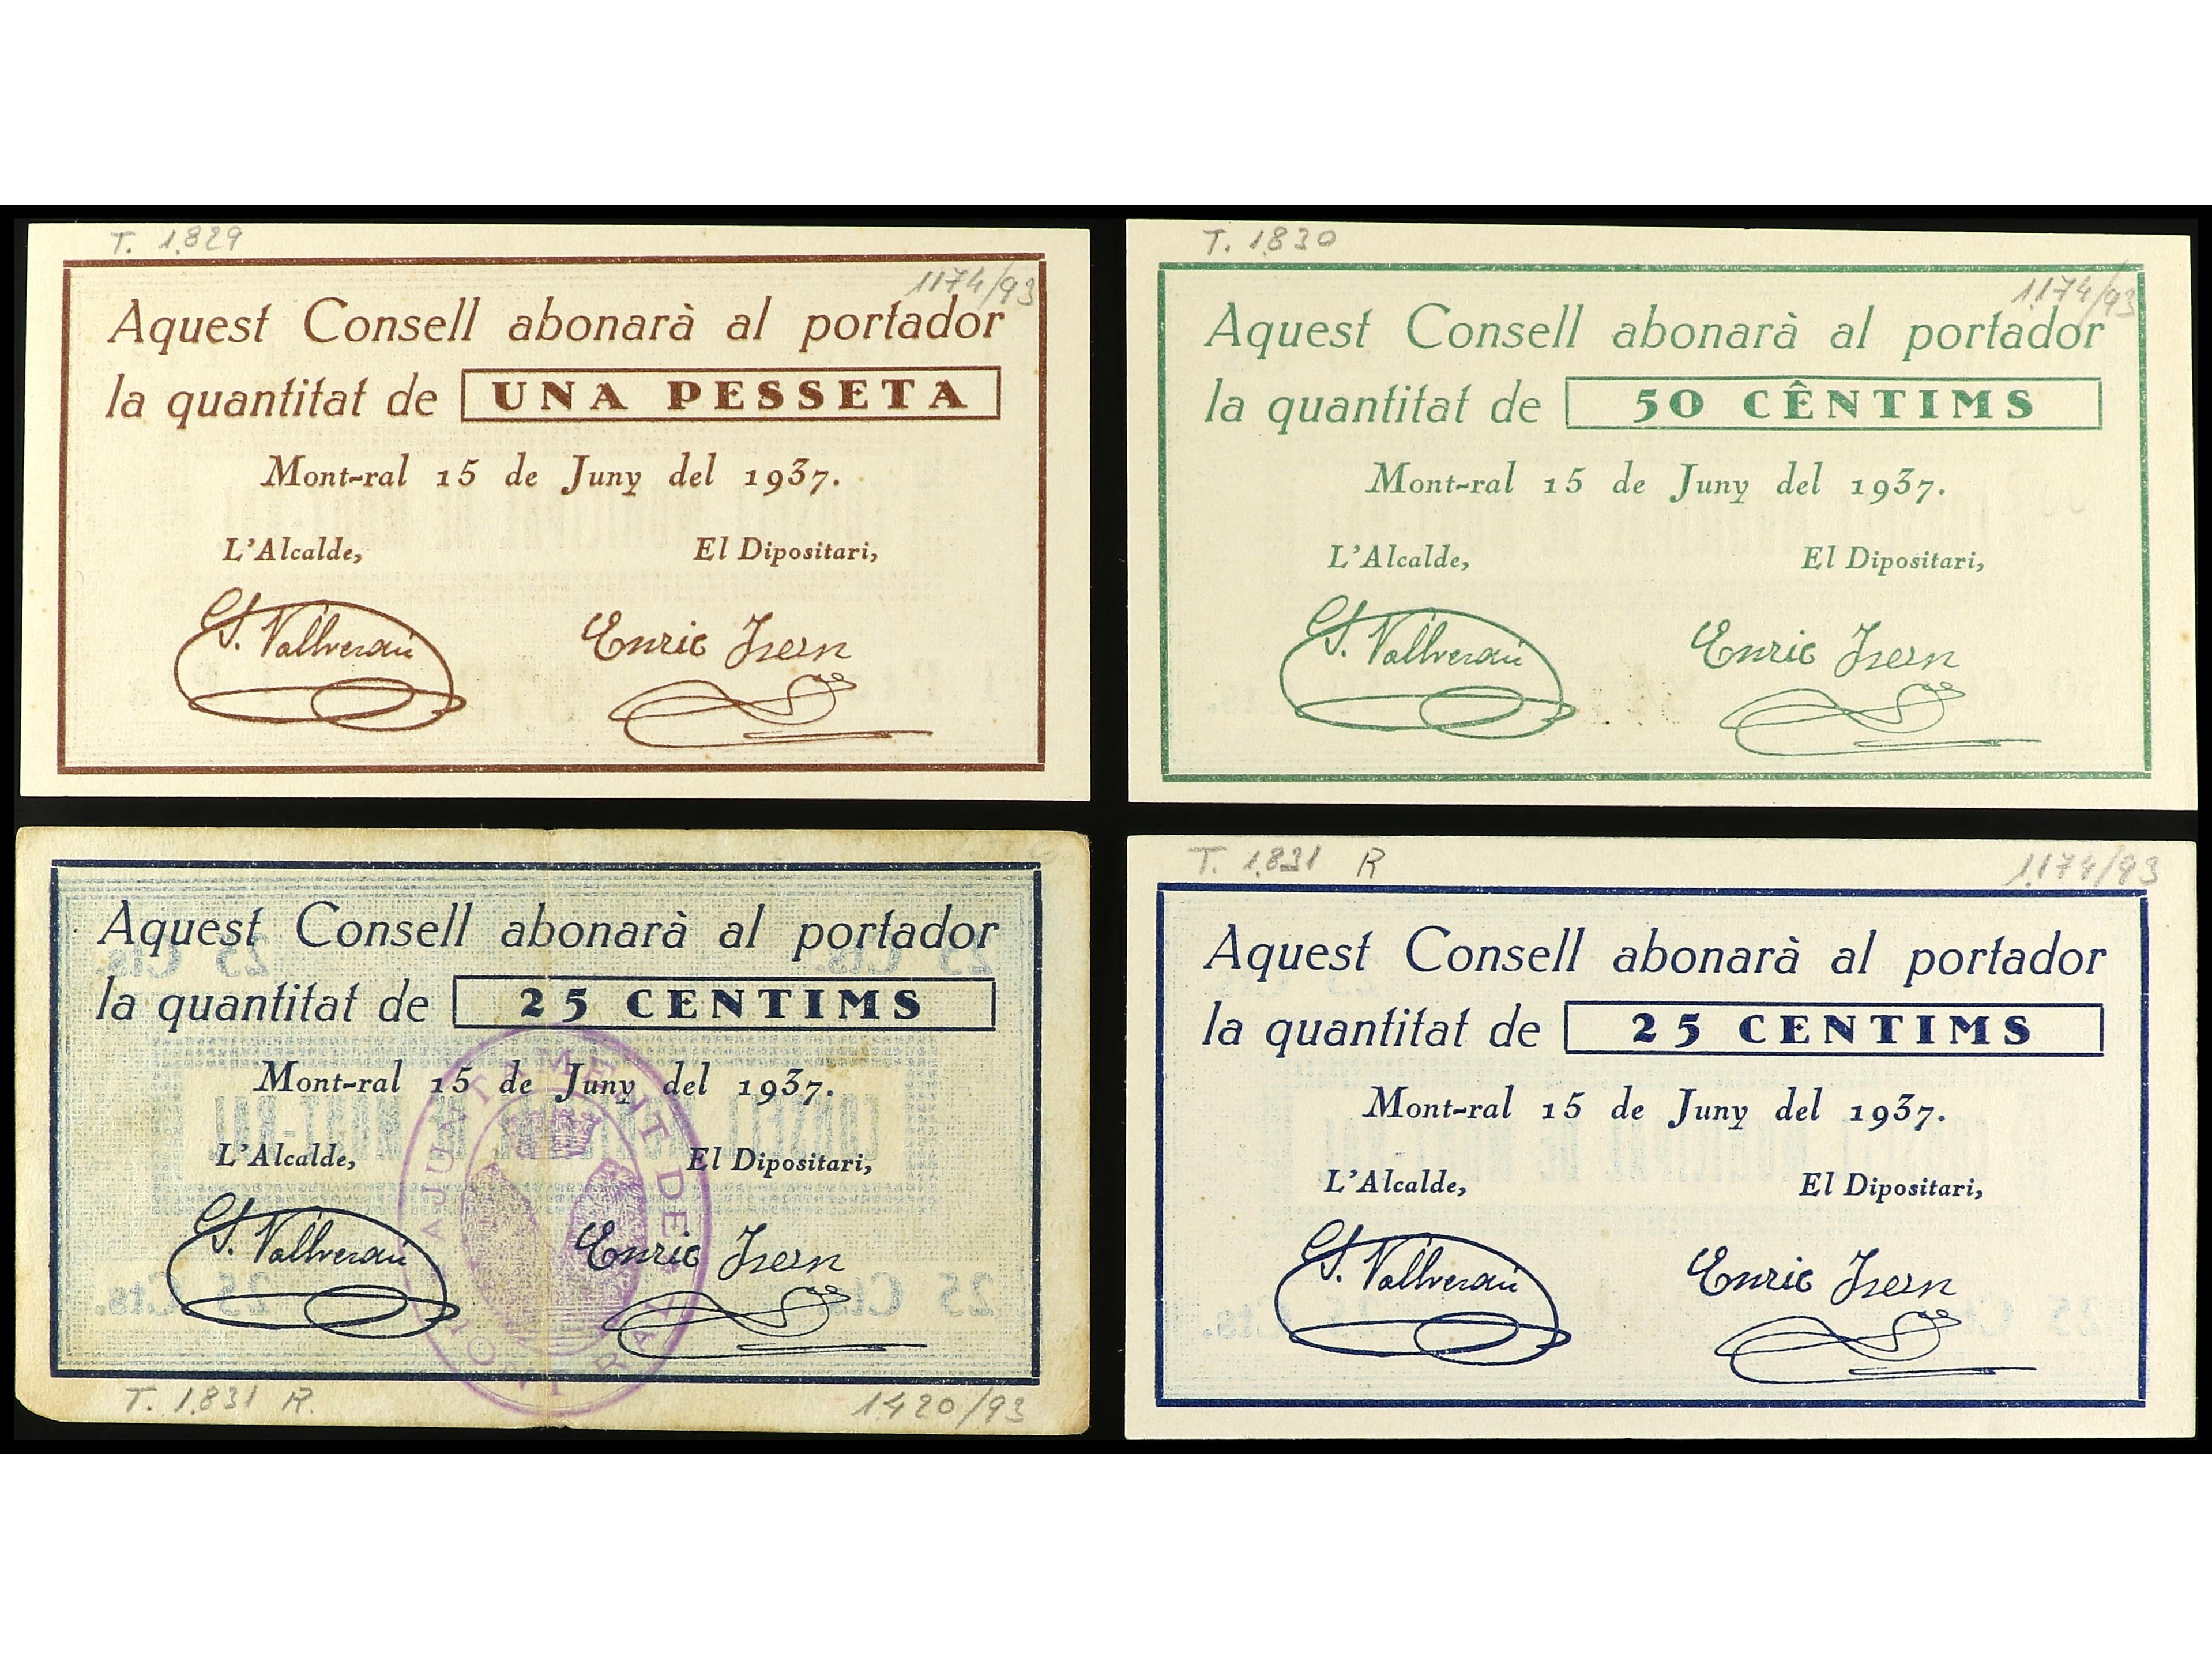 T. 1.829
1174/93
Aquest Consell abonarà al portador
la quantitat de UNA PESSETA
Mont-ral 15 de Juny del 1937.
L'Alcalde, El Dipositari,
Vallverdú Enric Isern
T. 1.830
1.174/93
Aquest Consell abonarà al portador
la quantitat de 50 CÊNTIMS
Mont-ral 15 de Juny del 1937.
L'Alcalde, El Dipositari,
Vallverdú Enric Isern
Aquest Consell abonarà al portador
la quantitat de 25 CENTIMS
Mont-ral 15 de Juny del 1937.
L'Alcalde, El Dipositari,
Vallverdú Enric Isern
AJUNTAMENT DE
MONT-RAL
CONSELL MUNICIPAL DE MONT-RAL
25 Cts. 25 Cts.
25 Cts. 25 Cts.
T. 1.831 R. 1.420/93
T. 1.831 R 1.174/93
Aquest Consell abonarà al portador
la quantitat de 25 CENTIMS
Mont-ral 15 de Juny del 1937.
L'Alcalde, El Dipositari,
Vallverdú Enric Isern